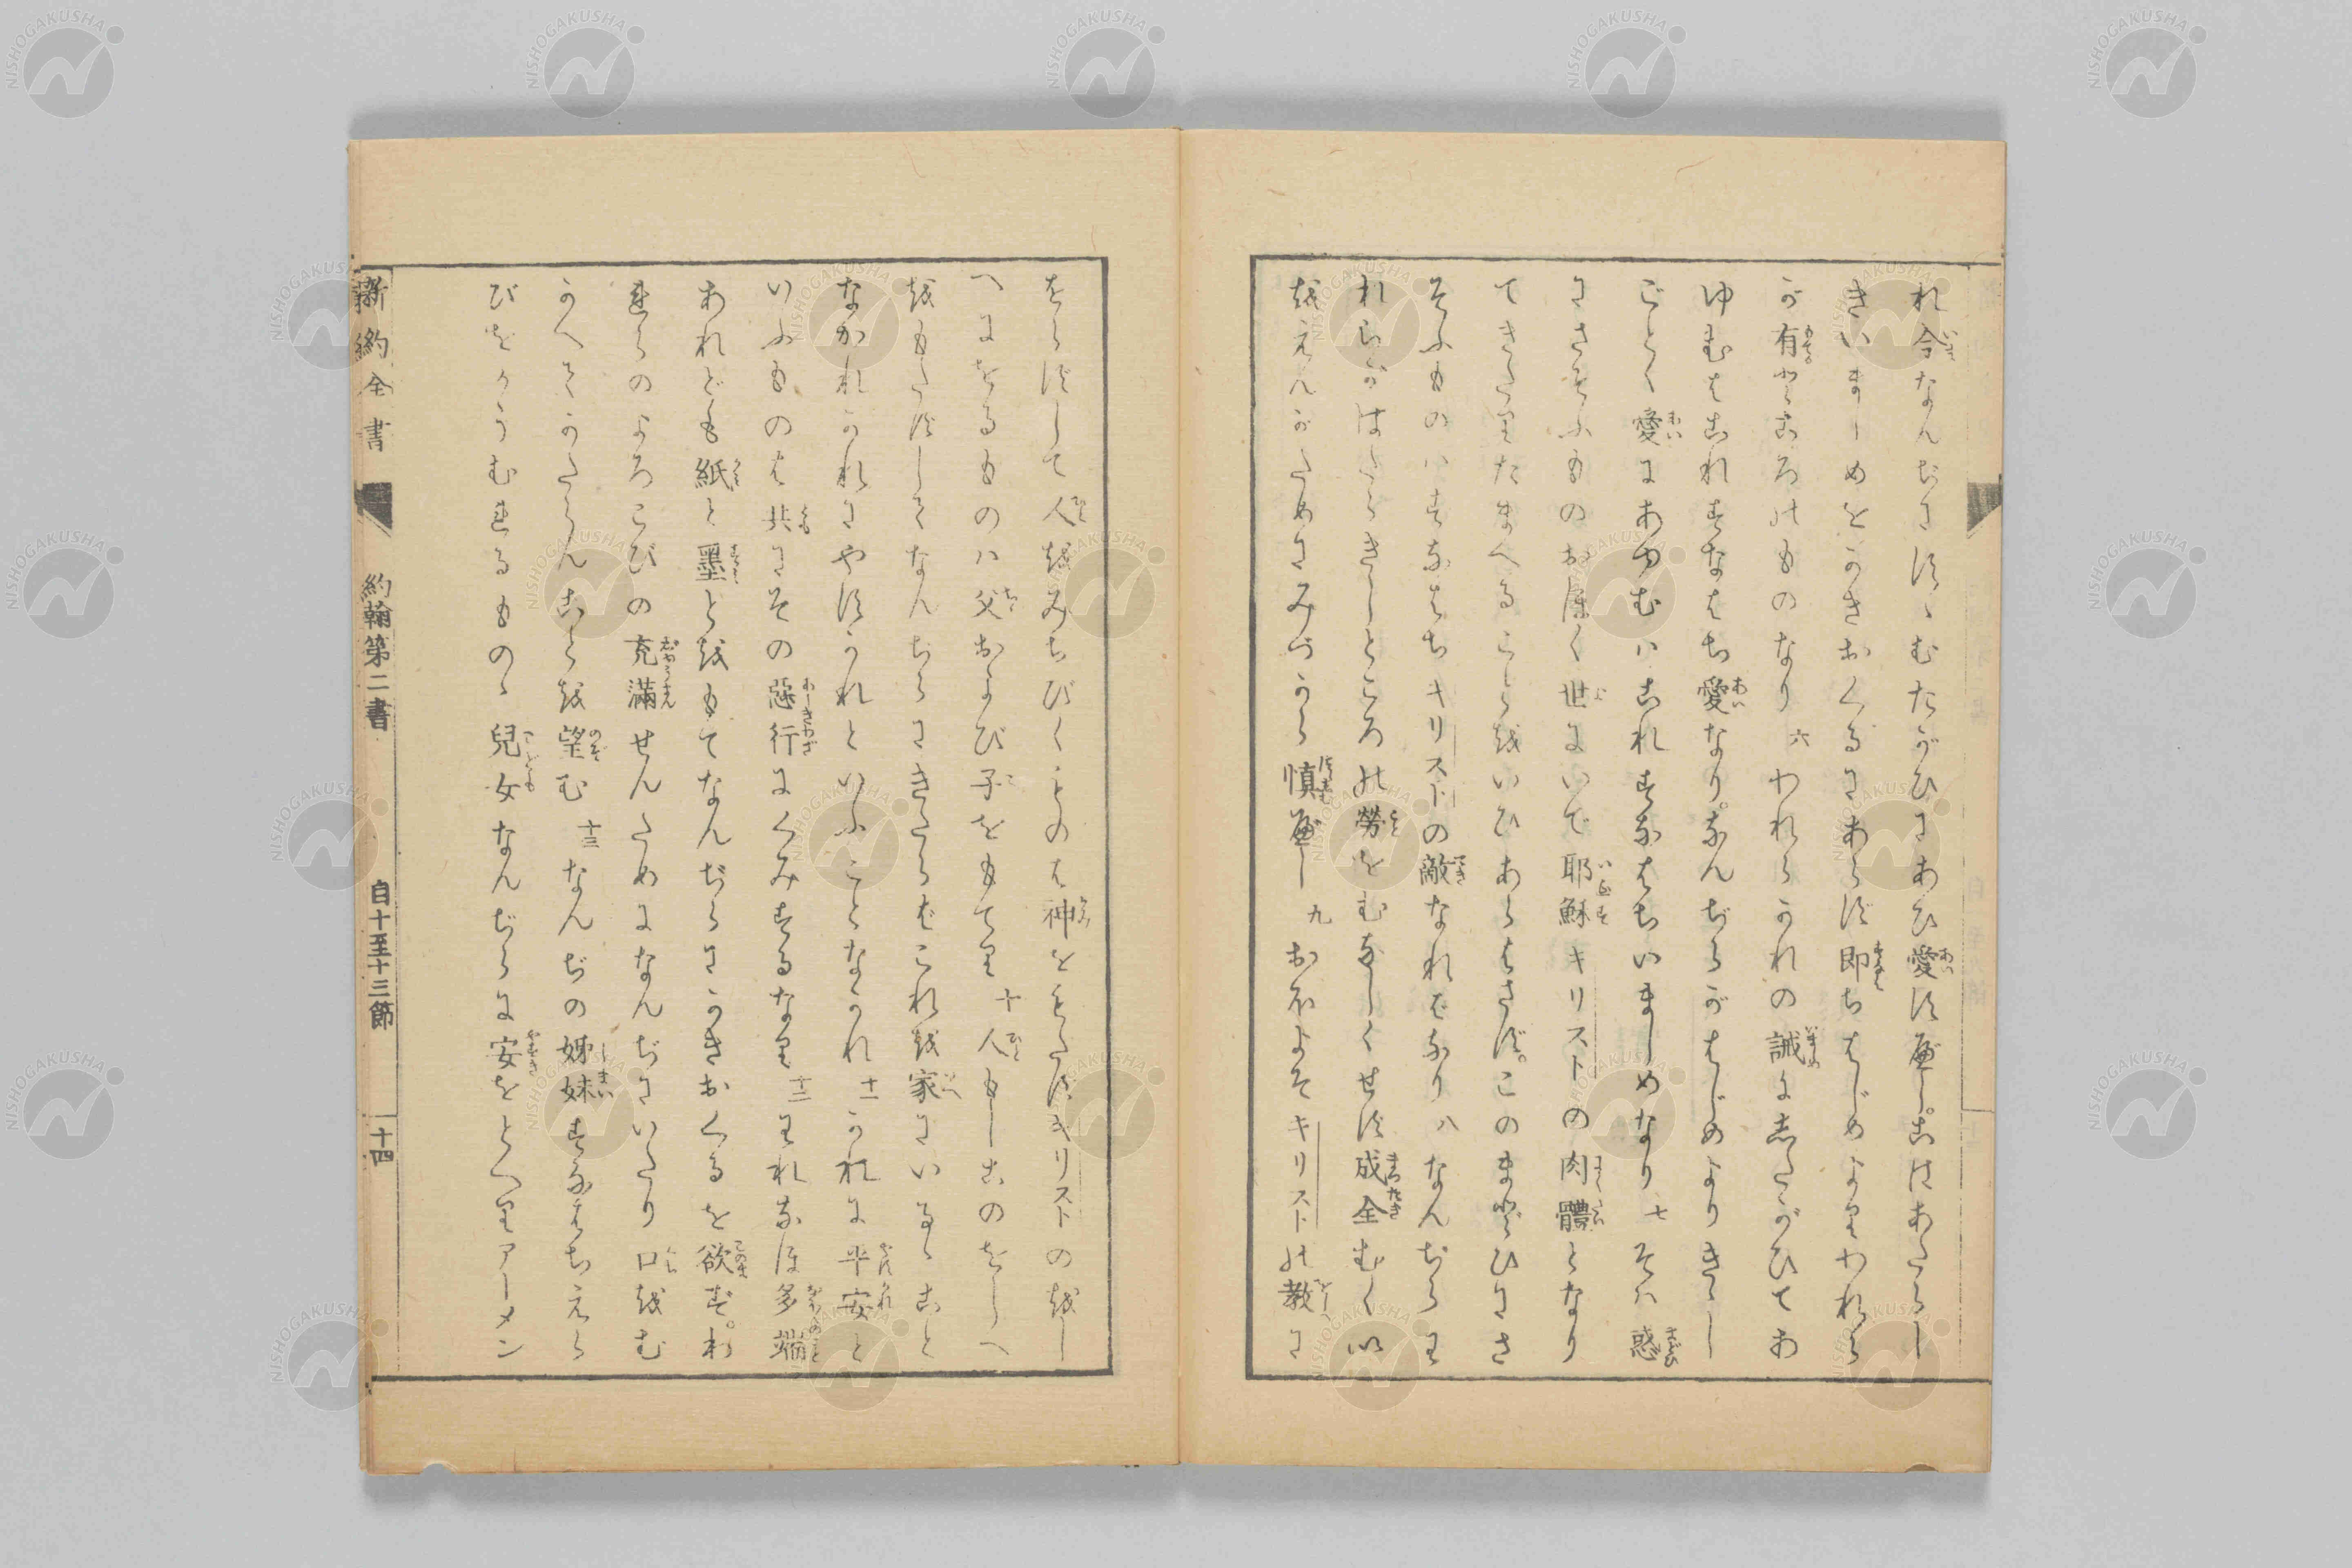 れ今なんぢにすゝむたがひにあひ愛すべし。こはあたらし
きいましめをかきおくるにあらず即ちはじめよりわれら
が有ところのものなり 六 われらかれの誡にしたがひてあ
ゆむはこれすなはち愛なり。なんぢらがはじめよりきゝし
ごとく愛にあゆむハこれすなはちいましめなり 七 そハ惑
にさそふものおほく世にいで耶穌キリストの肉體となり
てきたりたまへることをいひあらはさず。このまどひにさ
そふものハすなはちキリストの敵なればなり 八 なんぢらわ
れらがはたらきしところの勞をむなしくせず成全むくい
をえんがためにみづから慎べし 九 おほよそキリストの教に
をらずして人をみちびくことのは神をもたずキリストのをし
へにをるものハ父および子をもてり 十 人もしこのをしへ
をもたずしてなんぢらにきたらばこれを家にいるゝこと
なかれかれにやすかれといふことなかれ 十一 かれに平安と
いふものは共にその惡行にくみするなり 十二 われなほ多端
あれども紙と墨とをもてなんぢらにかきおくるを欲ず。わ
れらのよろこびの充滿せんためになんぢにいたり口をむ
かへてかたらんことを望む 十三 なんぢの姊妹すなはちえら
びをかうむれるものゝ兒女なんぢらに安をとへりアーメン
新約全書 約翰第二書 自十至十三節 十四
NISHOGAKUSHA